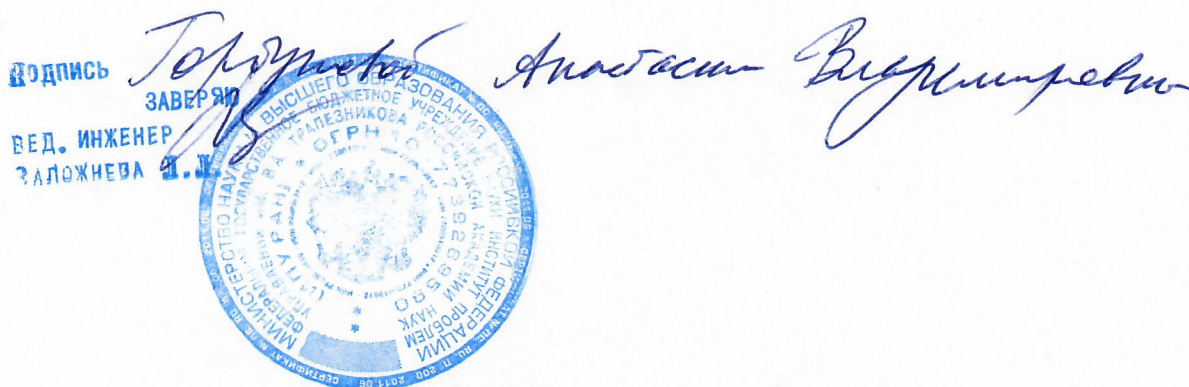 ПОДПИСЬ Горбуновой Анастасии Владимировны
ЗАВЕРЯЮ
ВЕД. ИНЖЕНЕР
ЗАЛОЖНЕВА П.Л.
МИНИСТЕРСТВО НАУКИ И ВЫСШЕГО ОБРАЗОВАНИЯ РОССИЙСКОЙ ФЕДЕРАЦИИ
ФЕДЕРАЛЬНОЕ ГОСУДАРСТВЕННОЕ БЮДЖЕТНОЕ УЧРЕЖДЕНИЕ НАУКИ ИНСТИТУТ ПРОБЛЕМ
УПРАВЛЕНИЯ ИМ. В.А. ТРАПЕЗНИКОВА РОССИЙСКОЙ АКАДЕМИИ НАУК
(ИПУ РАН) * ОГРН 1037739269590 *